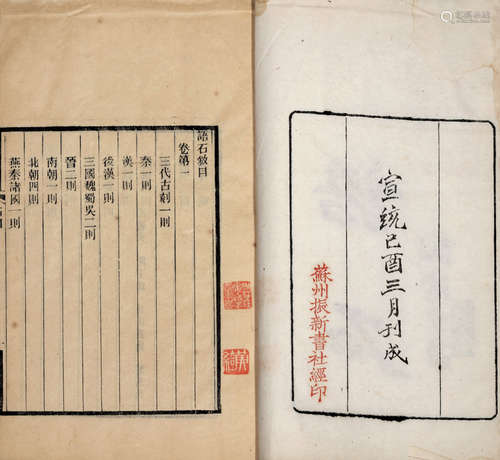 宣統己酉三月刊成
蘇州振新書社經印
語石敘目
卷第一
三代古刻一則
秦一則
漢一則
後漢一則
三國魏蜀吳二則
晉二則
南朝一則
北朝四則
燕秦諸國一則